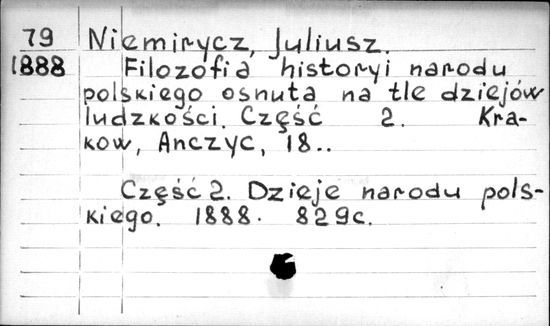 79 Niemirycz, Juliusz.
1888 Filozofia historyi narodu
polskiego osnuta na tle dziejów
ludzkości. Część 2. Kra-
kow, Anczyc, 18..
Część 2. Dzieje narodu pols-
kiego. 1888. 829c.